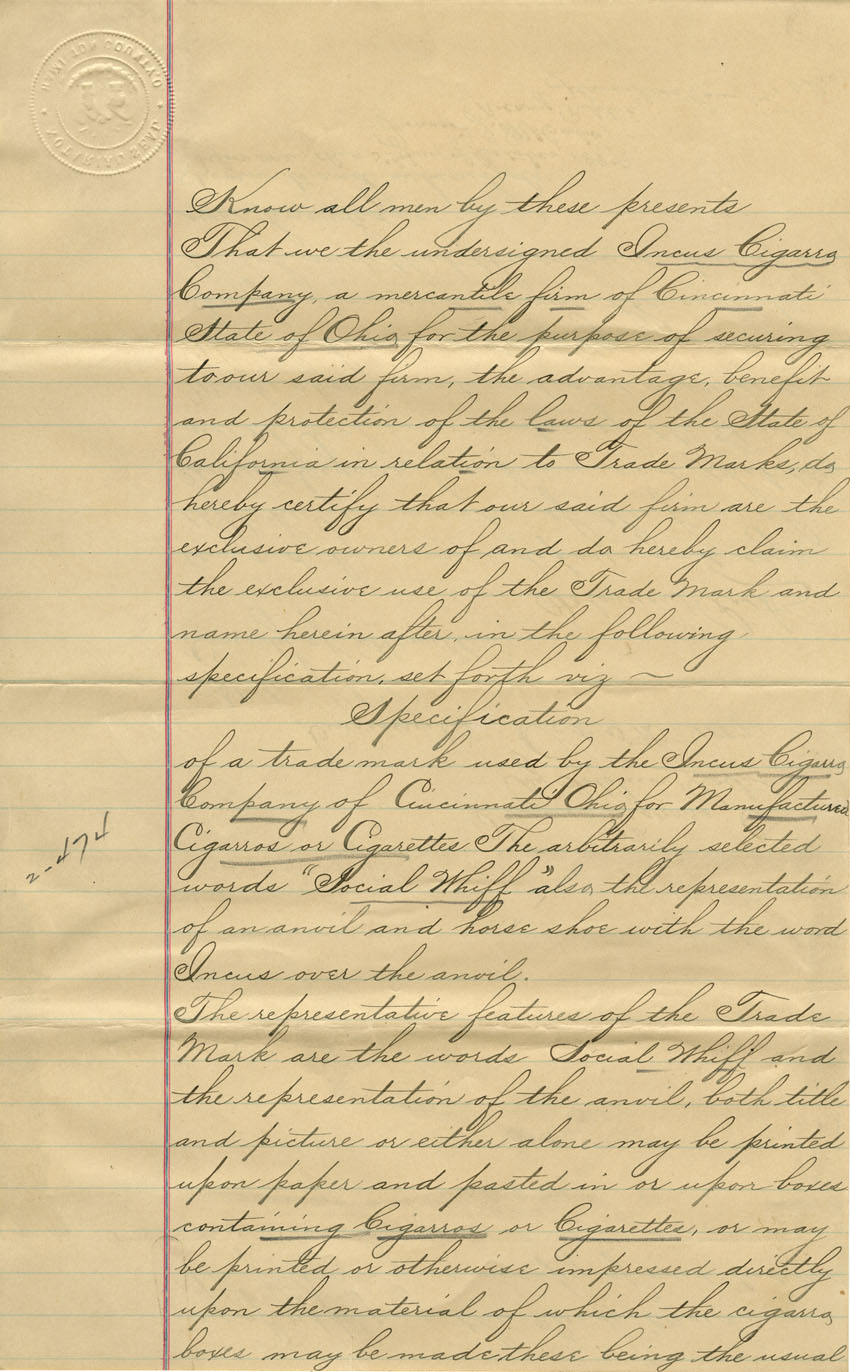 Know all men by these presents
That we the undersigned Incus Cigarro
Company, a mercantile firm of Cincinnati
State of Ohio for the purpose of securing
to our said firm, the advantage, benefit
and protection of the laws of the State of
California in relation to Trade Marks, do
hereby certify that our said firm are the
exclusive owners of and do hereby claim
the exclusive use of the Trade Mark and
name herein after, in the following
specification, set forth viz ~
Specification
of a trade mark used by the Incus Cigarro
Company of Cincinnati Ohio for Manufactured
Cigarros or Cigarettes The arbitrarily selected
words "Social Whiff" also the representation
of an anvil and horse shoe with the word
Incus over the anvil.
The representative features of the Trade
Mark are the words Social Whiff and
the representation of the anvil, both title
and picture or either alone may be printed
upon paper and pasted in or upon boxes
containing Cigarros or Cigarettes, or may
be printed or otherwise impressed directly
upon the material of which the cigarro
boxes may be made these being the usual
2-474